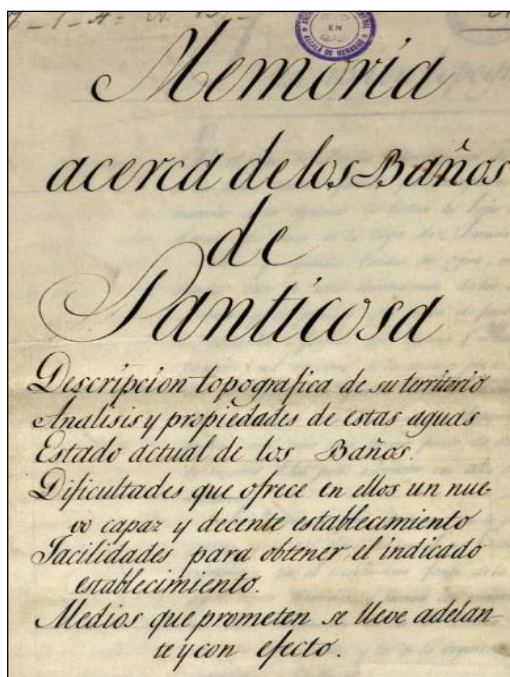 Memoria
acerca de los Baños
de
Panticosa
Descripcion topografica de su territorio
Analisis y propiedades de estas aguas
Estado actual de los Baños.
Dificultades que ofrece en ellos un nue-
vo capaz y decente establecimiento
Facilidades para obtener el indicado
establecimiento.
Medios que prometen se lleve adelan-
te y con efecto.